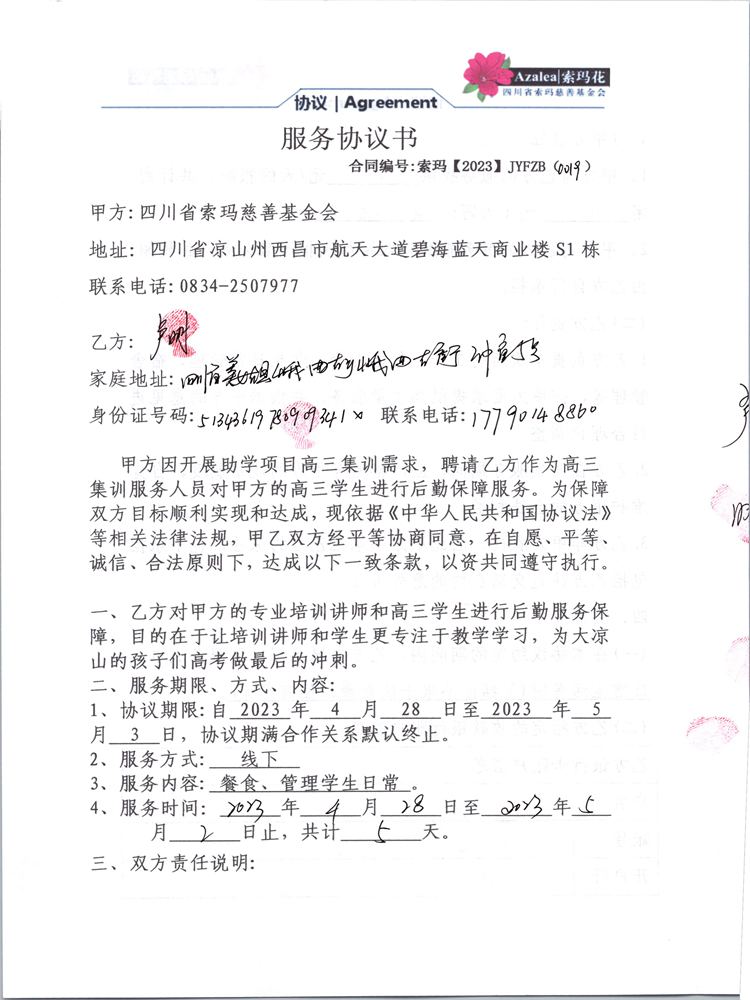 Azalea|索玛花
四川省索玛慈善基金会
协议 | Agreement
服务协议书
合同编号:索玛【2023】JYFZB（0019）
甲方:四川省索玛慈善基金会
地址: 四川省凉山州西昌市航天大道碧海蓝天商业楼 S1 栋
联系电话:0834-2507977
乙方:
家庭地址:
身份证号码:51343619780909341x 联系电话:17790148860
甲方因开展助学项目高三集训需求，聘请乙方作为高三
集训服务人员对甲方的高三学生进行后勤保障服务。为保障
双方目标顺利实现和达成，现依据《中华人民共和国协议法》
等相关法律法规，甲乙双方经平等协商同意，在自愿、平等、
诚信、合法原则下，达成以下一致条款，以资共同遵守执行。
一、乙方对甲方的专业培训讲师和高三学生进行后勤服务保
障，目的在于让培训讲师和学生更专注于教学学习，为大凉
山的孩子们高考做最后的冲刺。
二、服务期限、方式、内容:
1、协议期限:自 2023 年 4 月 28 日至 2023 年 5
月 3 日，协议期满合作关系默认终止。
2、服务方式: 线下
3、服务内容: 餐食、管理学生日常 。
4、服务时间: 2023 年 4 月 28 日至 2023 年 5
月 2 日止，共计 5 天。
三、双方责任说明: